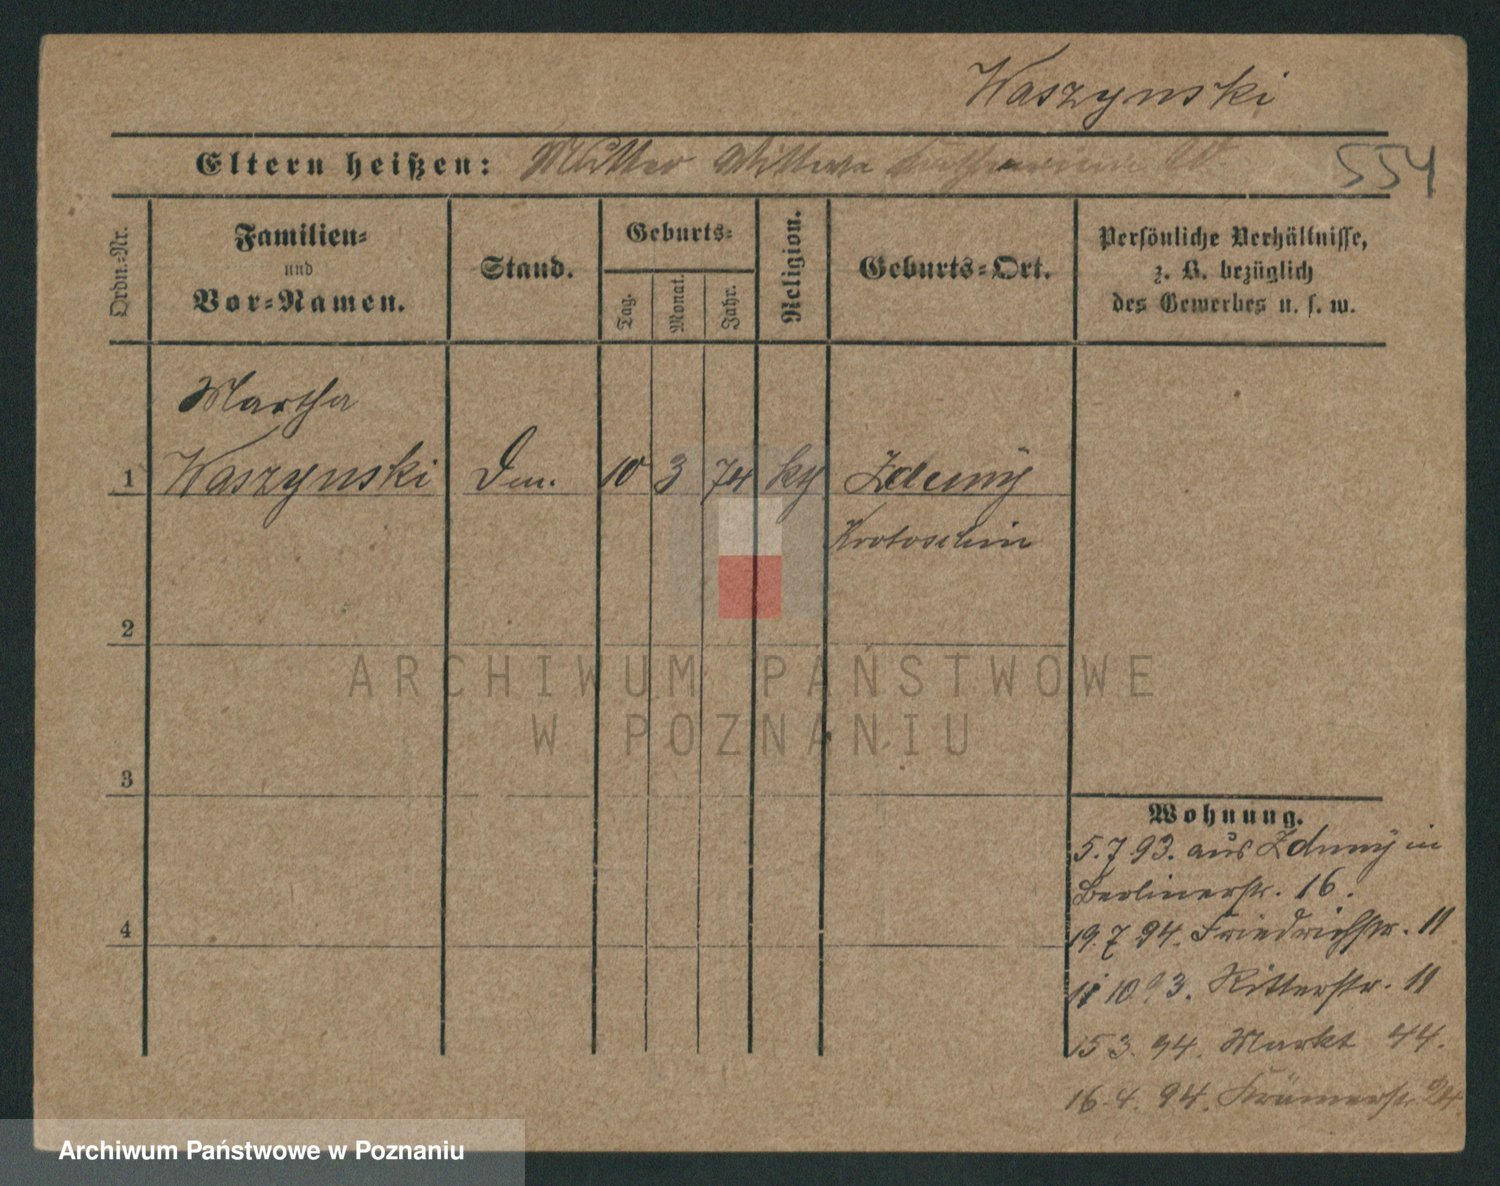 Waszynski
Eltern heißen: Mutter Wittwe
554
Ordn.-Nr.
Familien-
und
Vor-Namen.
Stand.
Geburts-
Tag.
Monat.
Jahr.
Religion.
Geburts-Ort.
Persönliche Verhältnisse,
z. B. bezüglich
des Gewerbes u. s. w.
Martha
1 Waszynski 10 3 74 Zduny
Krotoschin
2
ARCHIWUM PAŃSTWOWE
W POZNANIU
3
Wohnung.
5.7.93. aus Zduny in
Berlinerstr. 16.
4
19.7 94. Friedrichstr. 11
10 93. Ritterstr. 11
15 3. 94. Markt 44.
16.4. 94. Krämerstr.
Archiwum Państwowe w Poznaniu